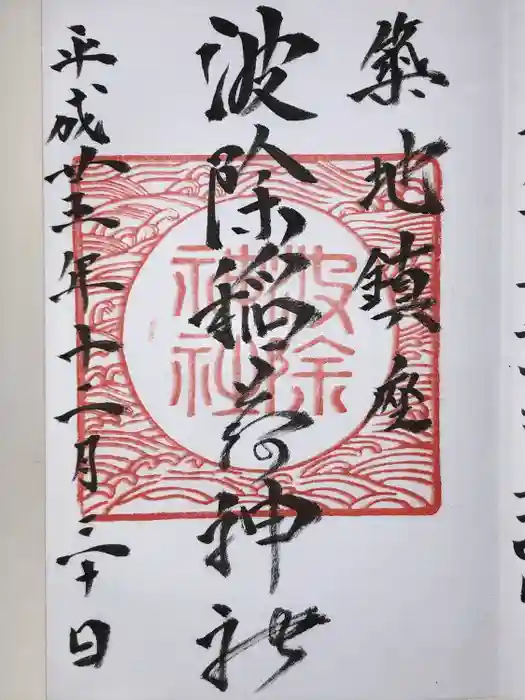 築地鎮座
波除稲荷神社
平成廿五年十二月三十日
波除
神社